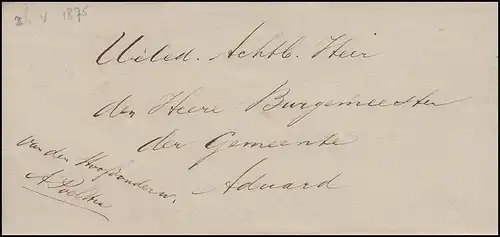 26 V 1875
Weled. Achtb. Heer
den Heere Burgemeester
der Gemeente
Aduard
van den Hoofdonderw.